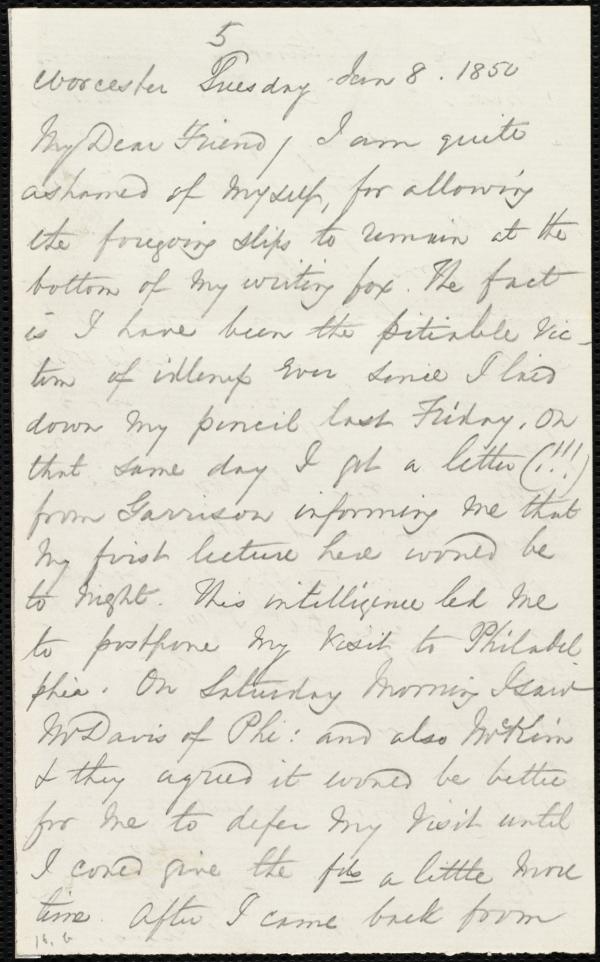 5
Worcester Tuesday Jan 8. 1850
My Dear Friend, I am quite
ashamed of myself, for allowing
the foregoing slips to remain at the
bottom of my writing box. The fact
is I have been the pitiable vic-
tim of idleness ever since I laid
down my pencil last Friday. On
that same day I got a letter (!!!)
from Garrison informing me that
my first lecture here would be
to night. This intelligence led me
to postpone my visit to Philadel
phia. On Saturday morning I saw
Mr Davis of Phi: and also McKim
& they agreed it would be better
for me to defer my visit until
I could give the a little more
time. After I came back from